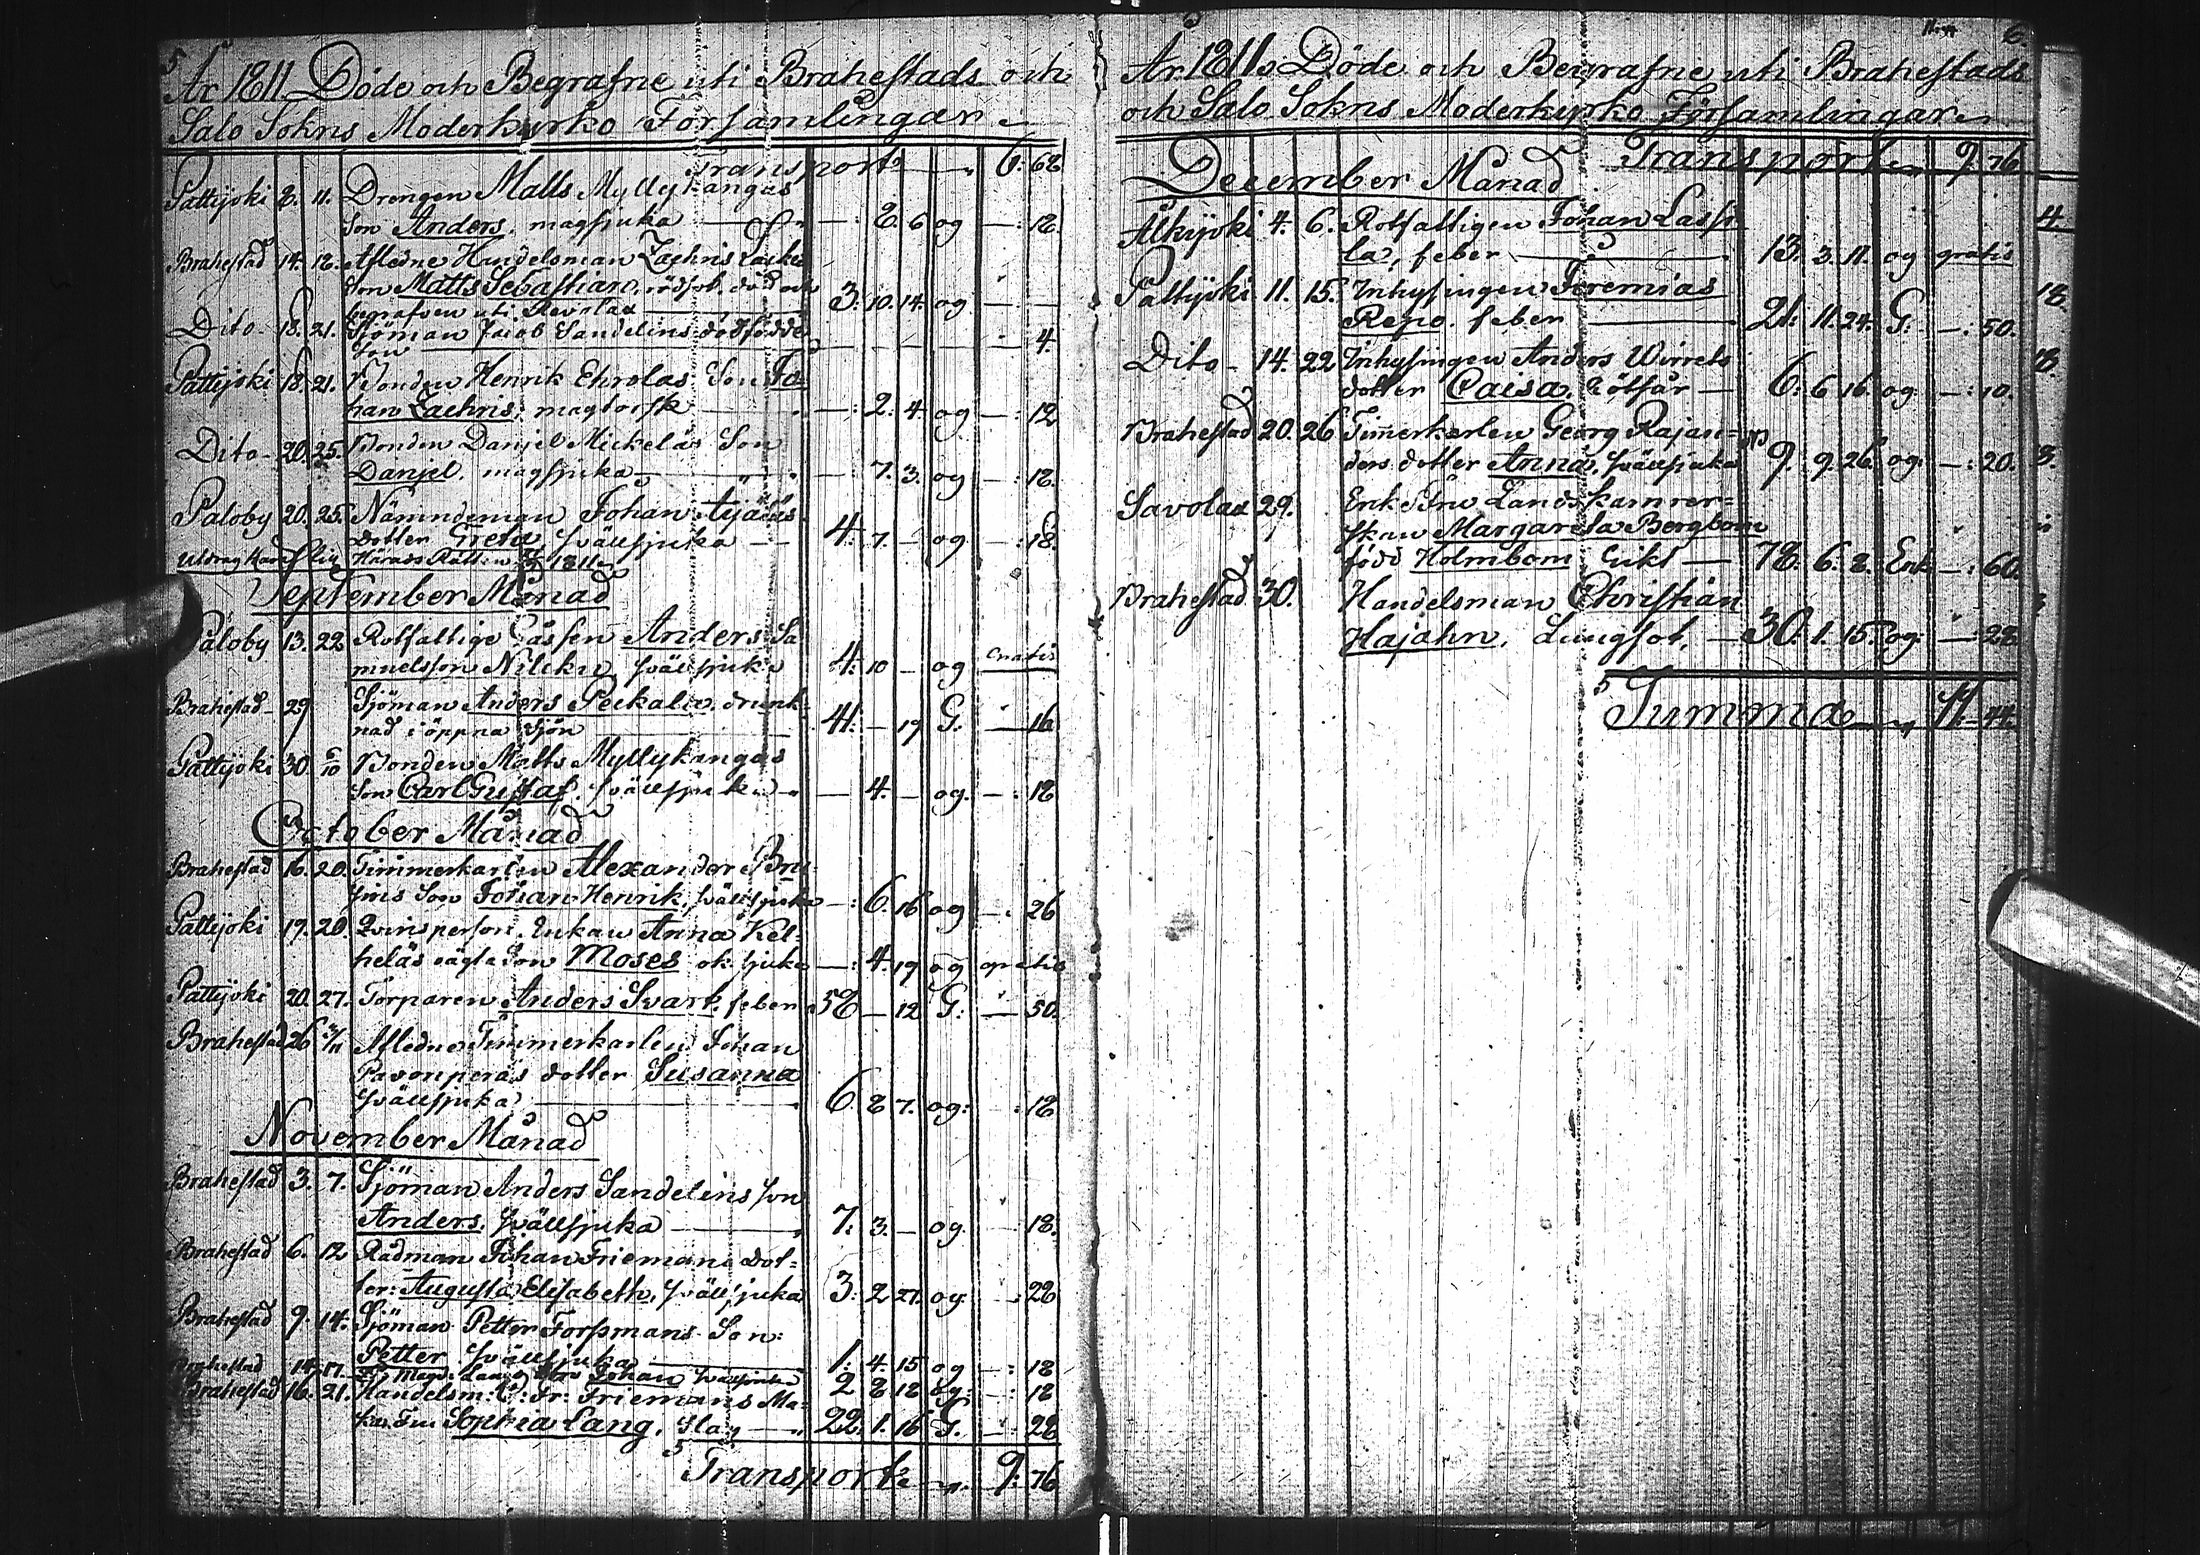 5
År 1811 Döde och Begrafne uti Brahestads och
Salo Sokns Moderkyrko Församlingar
Transport 6: 68
Pattijoki 8. 11. Drengen Matts Myllykangas
Son Anders, magsjuka — 8. 6 og —: 18
Brahestad 14. 18. Afledne Handelsman Zachris
Son Matts Sebastian, rödsot, död och 3: 10. 14. og — —
begrafven uti Revolax
Dito 18. 21. Sjöman Jacob Sandelins dödfödde
Son — 4.
Pattijoki 18. 21. Bonden Henrik Ehrolas Son Jo-
han Zachris, magtorsk —: 2. 4. og —: 12
Dito 20. 25. Bonden Daniel Mickeläs Son
Daniel, magsjuka —: 7. 3. og —: 18.
Paloby 20. 25. Nämndeman Johan Äijäläs
dotter Greta svällsjuka 4: 7. — og —: 18.
Härads Rätten 1811
September Månad
Paloby 13. 22 Rotfattige Gossen Anders Sa
muelsson Niliku svällsjuka 4: 10 — og gratis
Brahestad 29 Sjöman Anders Pekkala drunk-
nad i öppna Sjön 41: — 19 G. — 16
Pattijoki 30. 6/10 Bonden Matts Myllykangas
Son Carl Gustaf, svällsjuka — 4. — og. —: 18
October Månad
Brahestad 16. 20. Timmerkarlen Alexander Bru-
sins Son Johan Henrik, svällsjuka —: 6. 16 og —: 26
Pattijoki 19. 20. Qvinsperson, Enkan Anna Kel-
heläs oägta Son Moses ok: sjuka —: 4. 19 og gratis
Pattijoki 20. 27. Torparen Anders Svark, feber 58 — 12 G: — 50.
Brahestad 26 Afledne Timmerkarlen Johan
Pavonperäs dotter Susanna
svällsjuka 6. 8 7. og: —: 18
November Månad
Brahestad 3. 7. Sjöman Anders Sandelins son
Anders, svällsjuka 7: 3. — og. 18.
Brahestad 6. 12 Rådman Johan Friemans dot-
ter: Augusta Elisabeth, svällsjuka 3: 2 27. og: —: 28
Brahestad 9. 14. Sjöman Petter Forssmans Son:
Petter, svällsjuka 1: 4. 15 og —: 18
Brahestad 14. 17. Johan svällsjuka 2 8 18 og: —: 18
Brahestad 16. 21. Handelsm: C: Fr: Friemans Ma-
ka Fru Sophia Lang, Slag 22. 1. 16 G. — 28
Transport 9: 76
6.
År 1811 Döde och Begrafne uti Brahestads
och Salo Sokns Moderkyrko Församlingar
Transport 9. 76
December Månad
Alkijoki 4. 6. Rotfattigen Johan Lassi-
la, feber 13. 3. 11. og gratis
Pattijoki 11. 15. Inhysingen Jeremias
Repo, feber 21: 11. 24. G: —: 50.
Dito 14. 22 Inhysingen Anders Wirrets
dotter Caisa, Rötsår 6: 6 16. og —: 10.
Brahestad 20. 26 Timmerkarlen Georg Rajan-
ders dotter Anna, svällsjuka 9. 9. 26. og —: 20.
Savolax 29. Enke Fru Lands kamrer-
skan Margareta Bergbom
född Holmbom Gikt 78. 6. 8. Enk —: 60.
Brahestad 30. Handelsman Christian
Hajahn, Lungsot, 30. 1. 15. og: —: 28.
Summa 11:— 44.